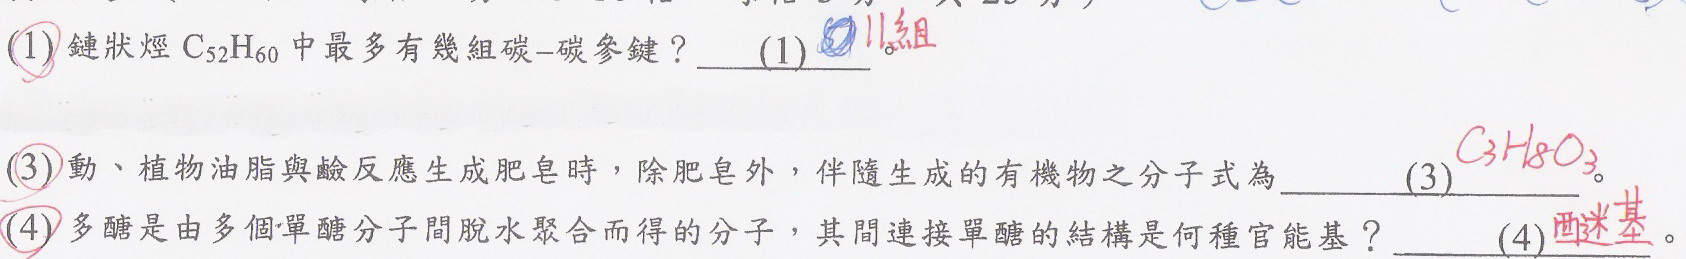 (1) 鏈狀烴 C52H60 中最多有幾組碳–碳參鍵? (1) 11組。
(3) 動、植物油脂與鹼反應生成肥皂時,除肥皂外,伴隨生成的有機物之分子式為 (3) C3H8O3。
(4) 多醣是由多個單醣分子間脫水聚合而得的分子,其間連接單醣的結構是何種官能基? (4) 醚基。